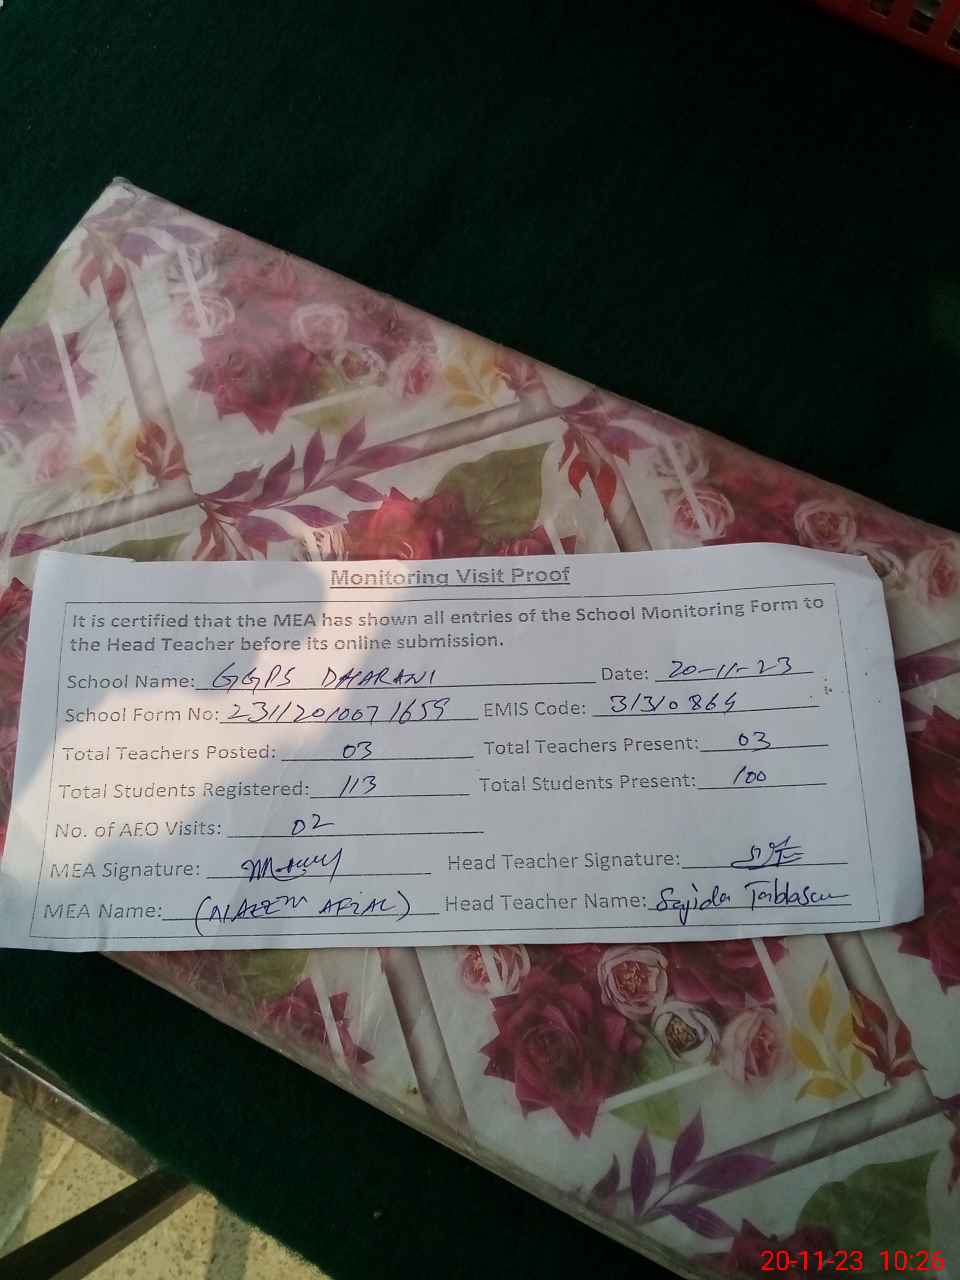 Monitoring Visit Proof
It is certified that the MEA has shown all entries of the School Monitoring Form to
the Head Teacher before its online submission.
School Name: GGPS DHARANI Date: 20-11-23
School Form No: 23112010071659 EMIS Code: 31310864
Total Teachers Posted: 03 Total Teachers Present: 03
Total Students Registered: 113 Total Students Present: 100
No. of AEO Visits: 02
MEA Signature: Head Teacher Signature:
MEA Name: (NAEEM AFZAL) Head Teacher Name: Sajida
20-11-23 10:26